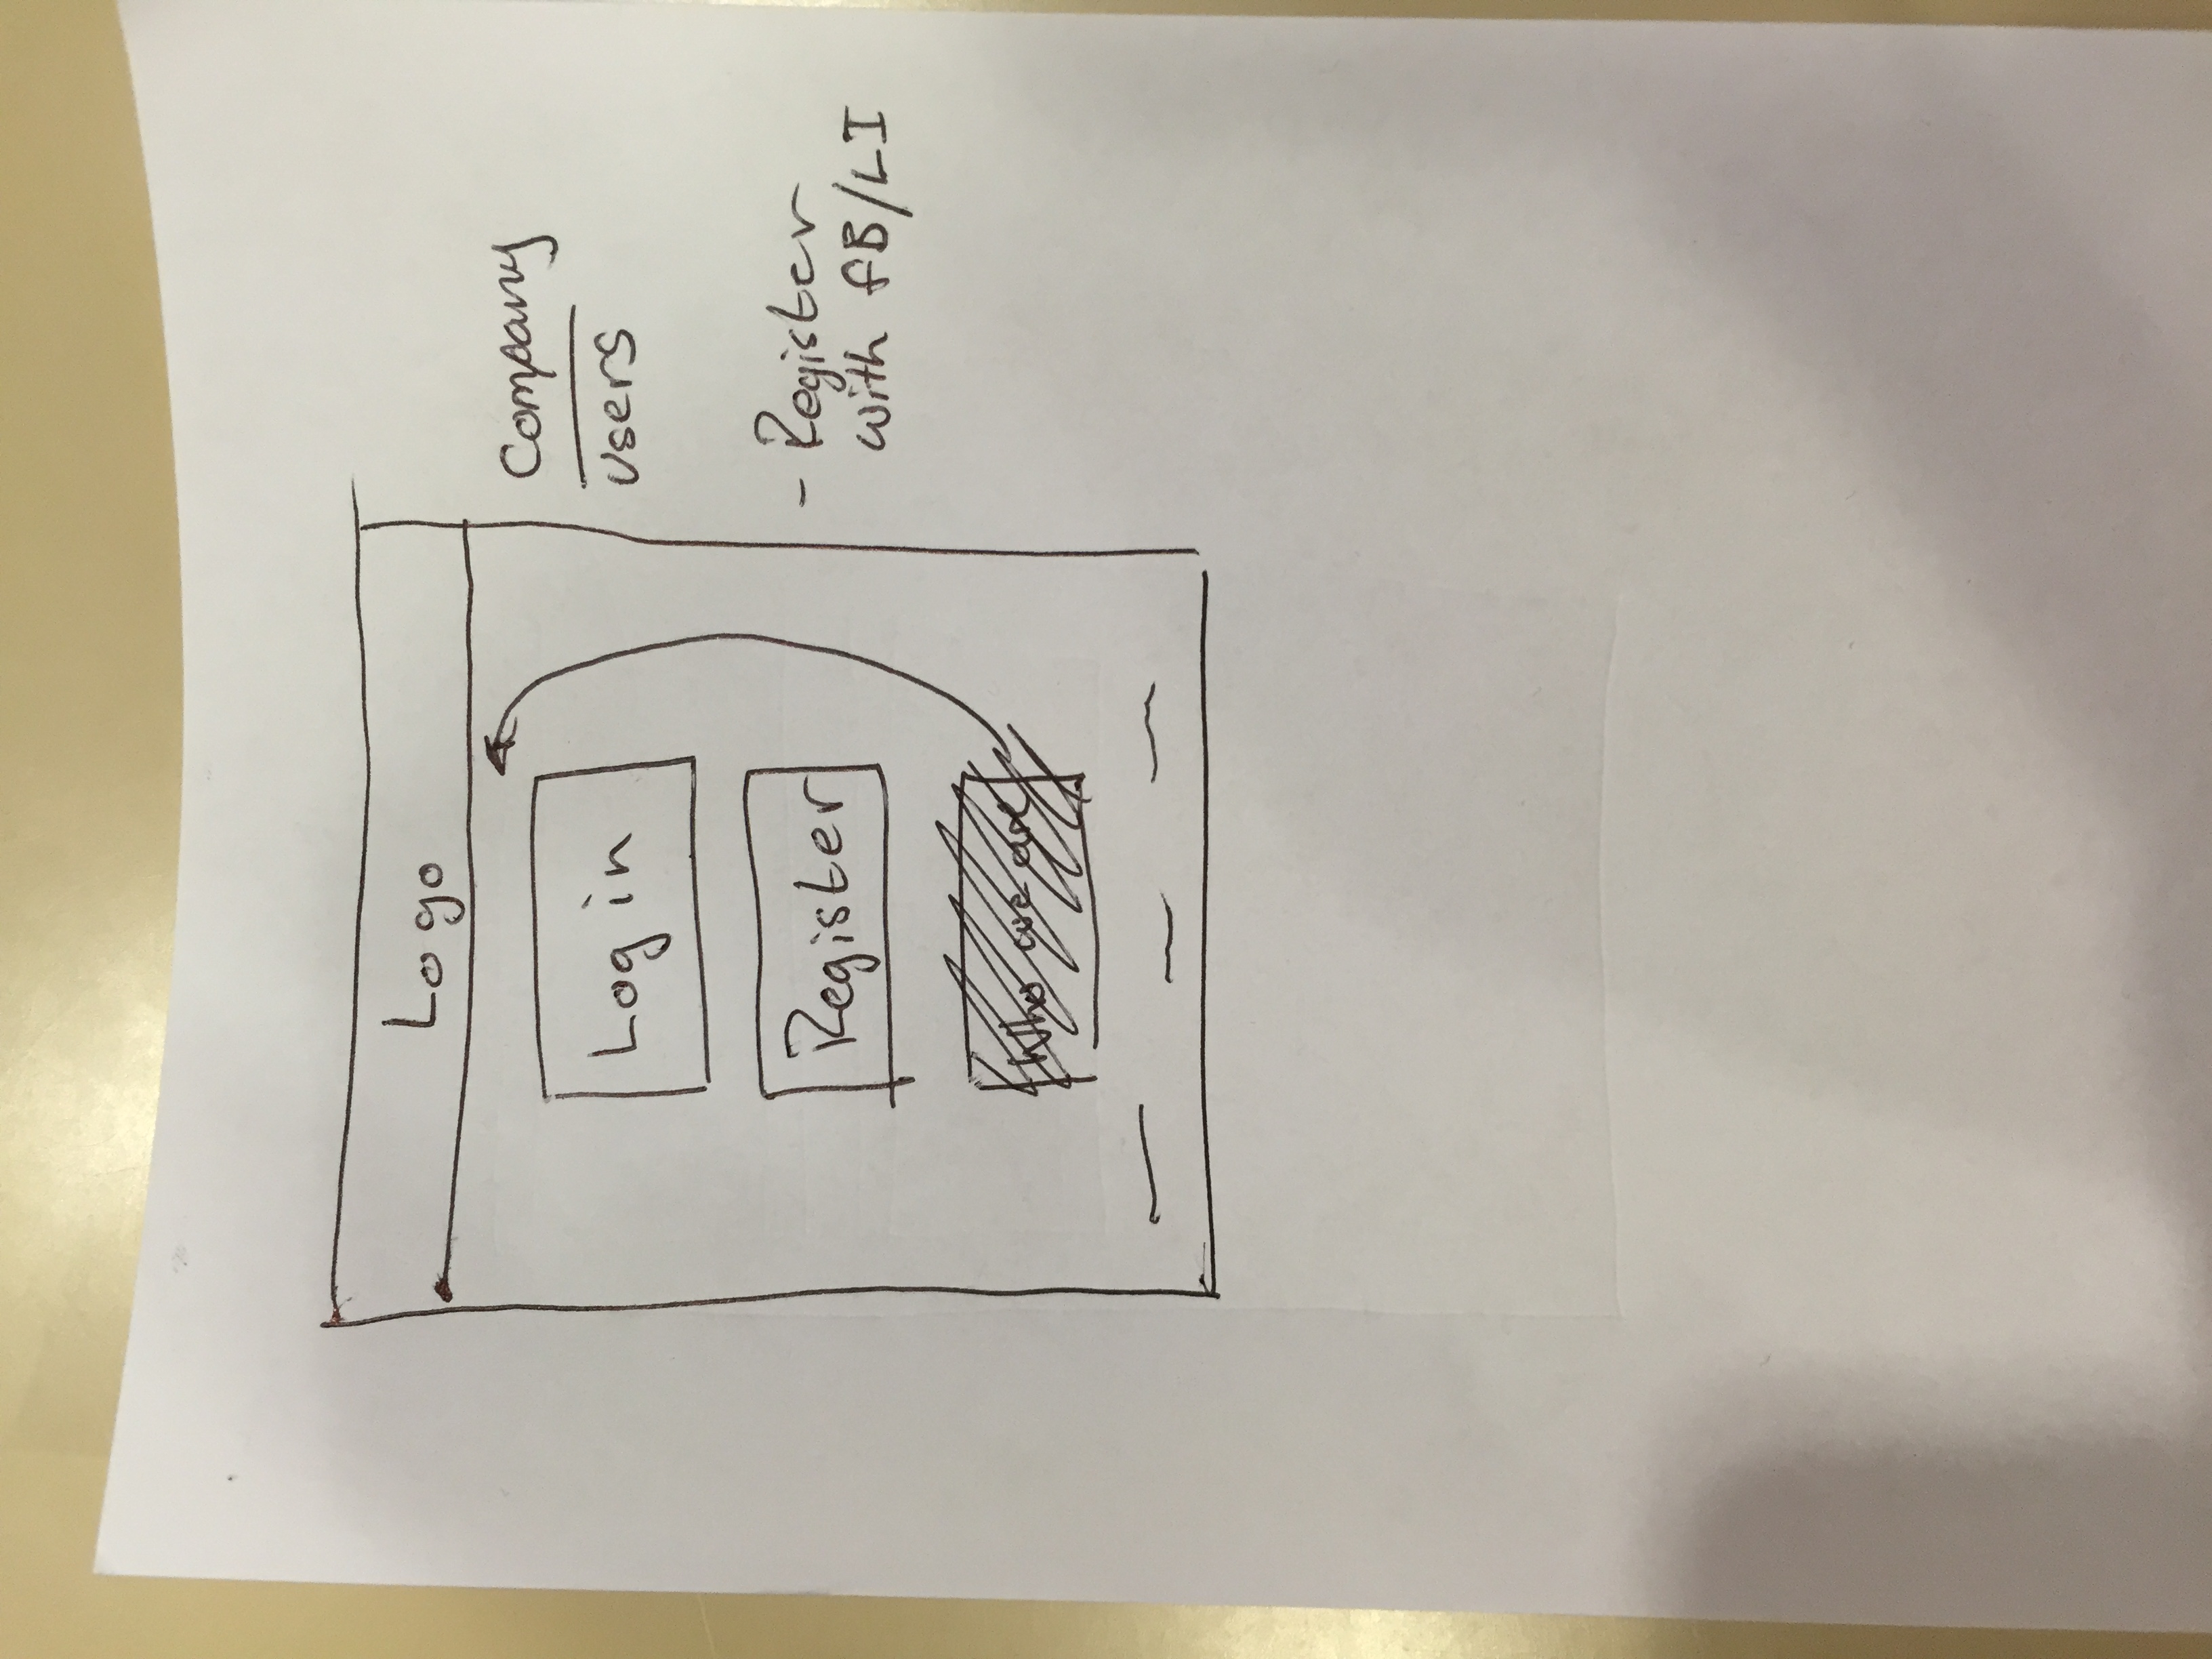 Logo
Log in
Register
Who we are
Company
users
- Register
with fB/LI